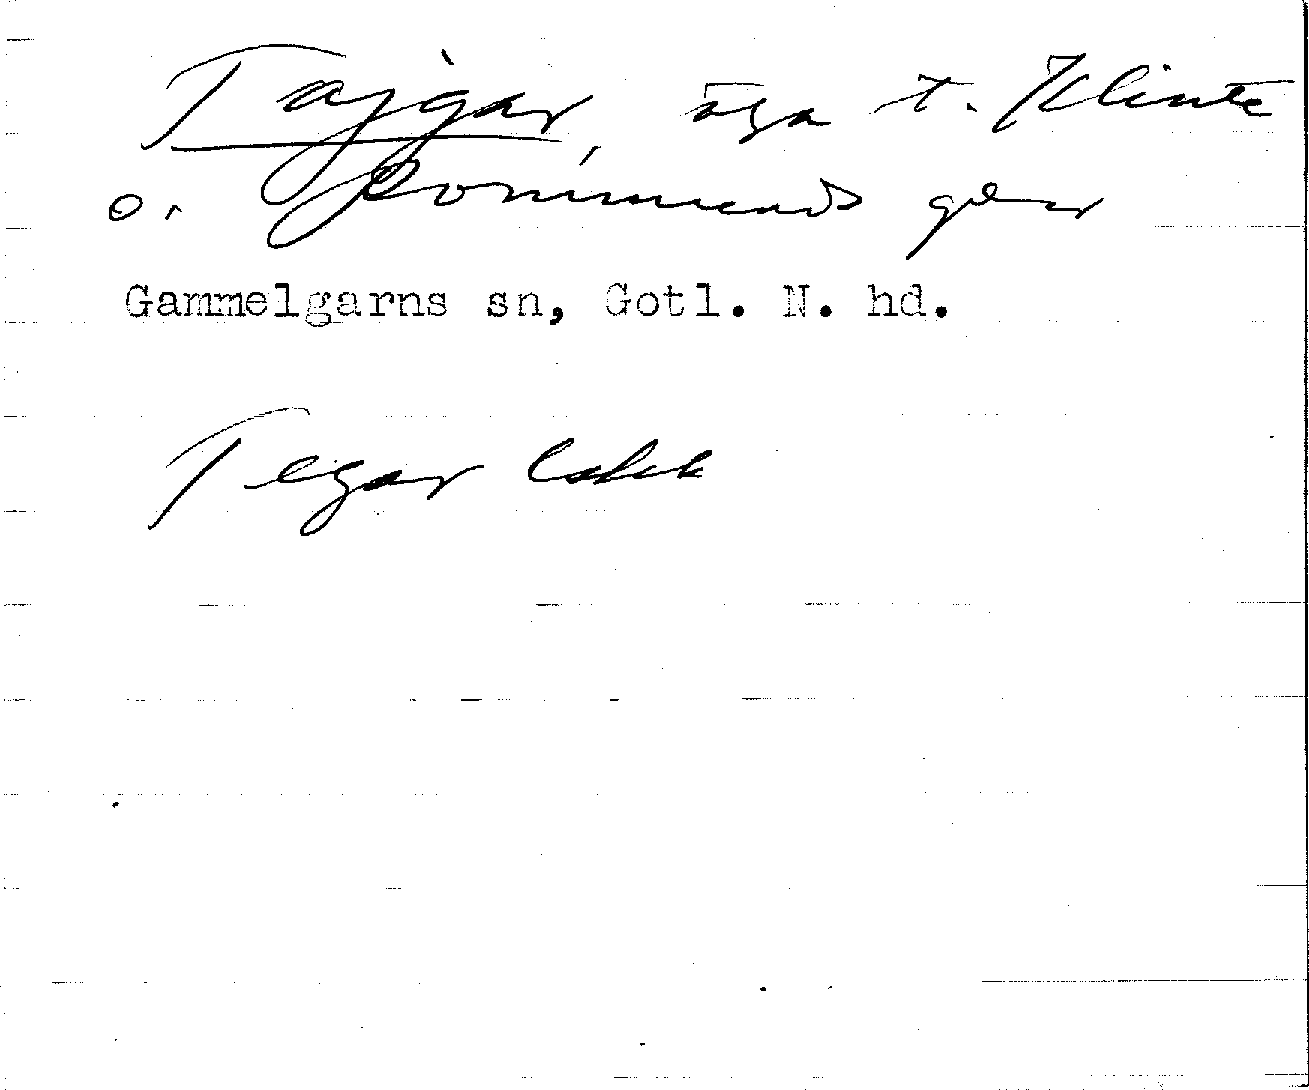 Tajgar, äga t. Klinte
o. Rommunds gdar
Gammelgarns sn, Gotl. N. hd.
Tegar